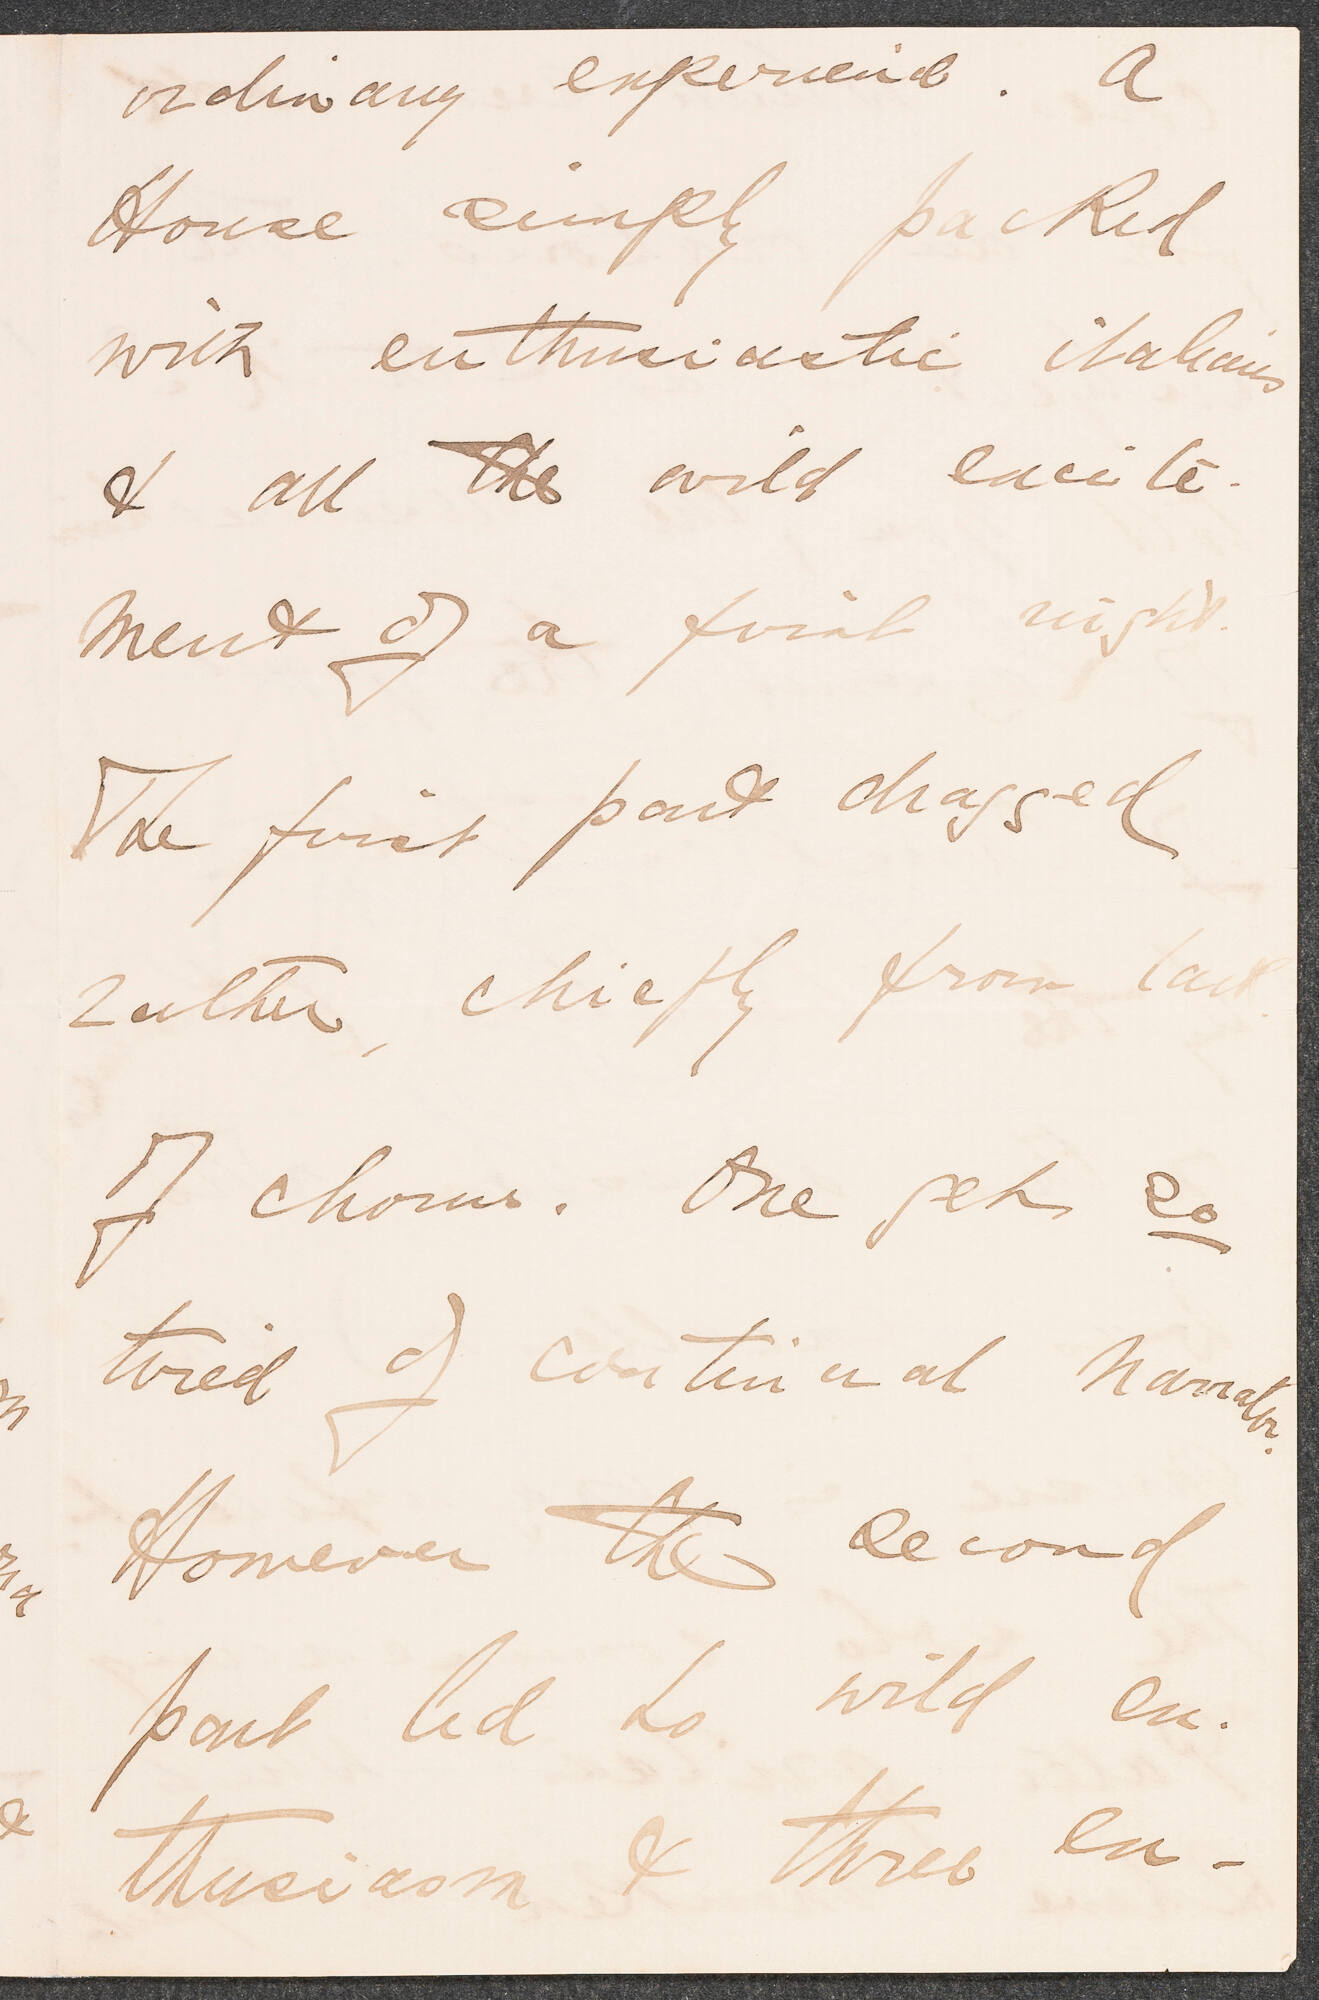 ordinary experience. A
House simply packed
with enthusiastic italians
& all the wild excite-
ment of a first night.
The first part dragged
rather, chiefly from lack
of chorus. One gets so
tired of continual narrator.
However the second
part led to wild en-
thusiasm & three en-